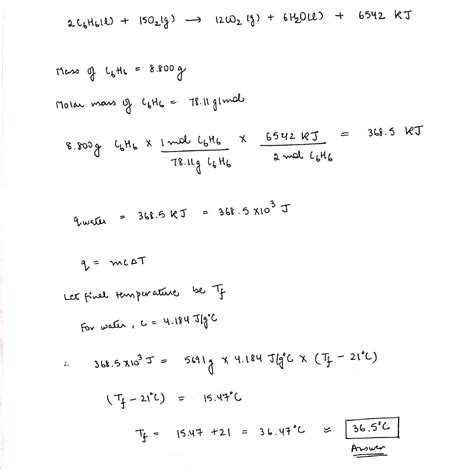 2C6H6(l) + 15O2(g) → 12CO2(g) + 6H2O(l) + 6542 KJ
Mass of C6H6 = 8.800g
Molar mass of C6H6 = 78.11 g/mol
8.800g C6H6 × 1 mol C6H6 / 78.11g C6H6 × 6542 KJ / 2 mol C6H6 = 368.5 KJ
qwater = 368.5 KJ = 368.5 ×10³ J
q = mcΔT
Let final temperature be Tf
For water, c = 4.184 J/g°C
∴ 368.5 ×10³ J = 5691g × 4.184 J/g°C × (Tf - 21°C)
(Tf - 21°C) = 15.47°C
Tf = 15.47 + 21 = 36.47°C ≈ 36.5°C
Answer